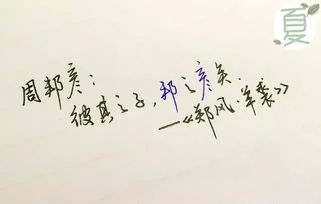 夏
周邦彦：
彼其之子，邦之彦兮.
—《郑风·羔裘》